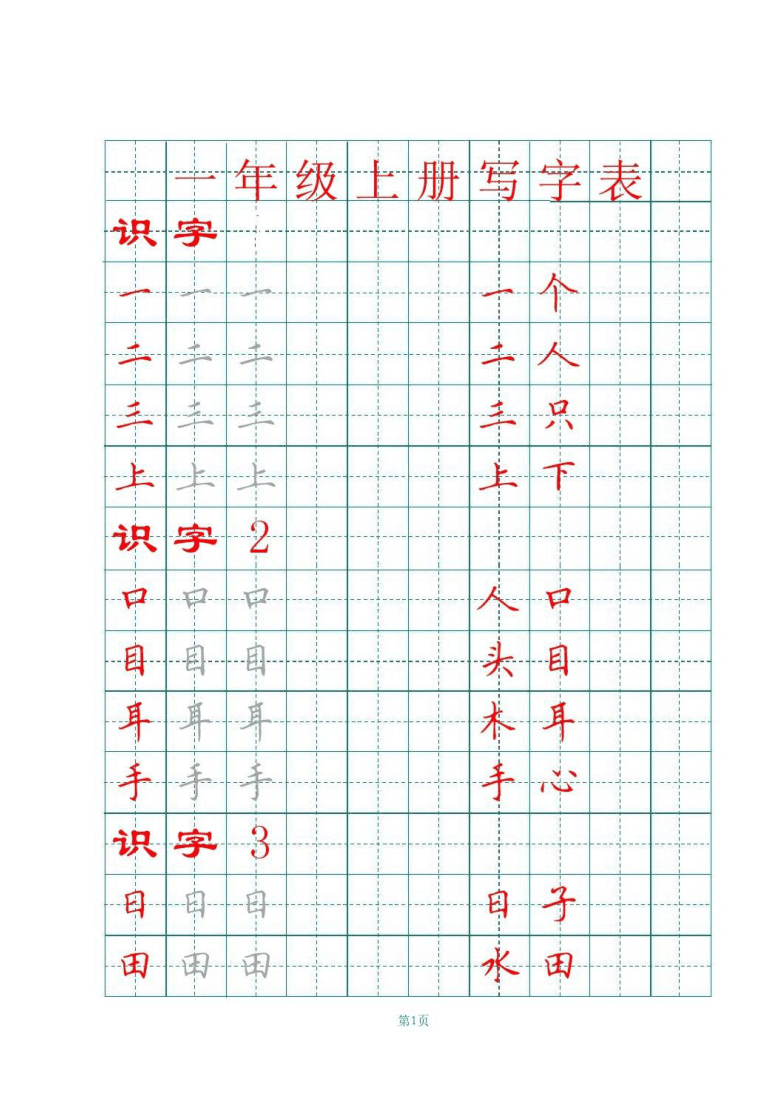 一年级上册写字表
识字
一 一 一 一个
二 二 二 二人
三 三 三 三只
上 上 上 上下
识字 2
口 口 口 人口
目 目 目 头目
耳 耳 耳 木耳
手 手 手 手心
识字 3
日 日 日 日子
田 田 田 水田
第1页